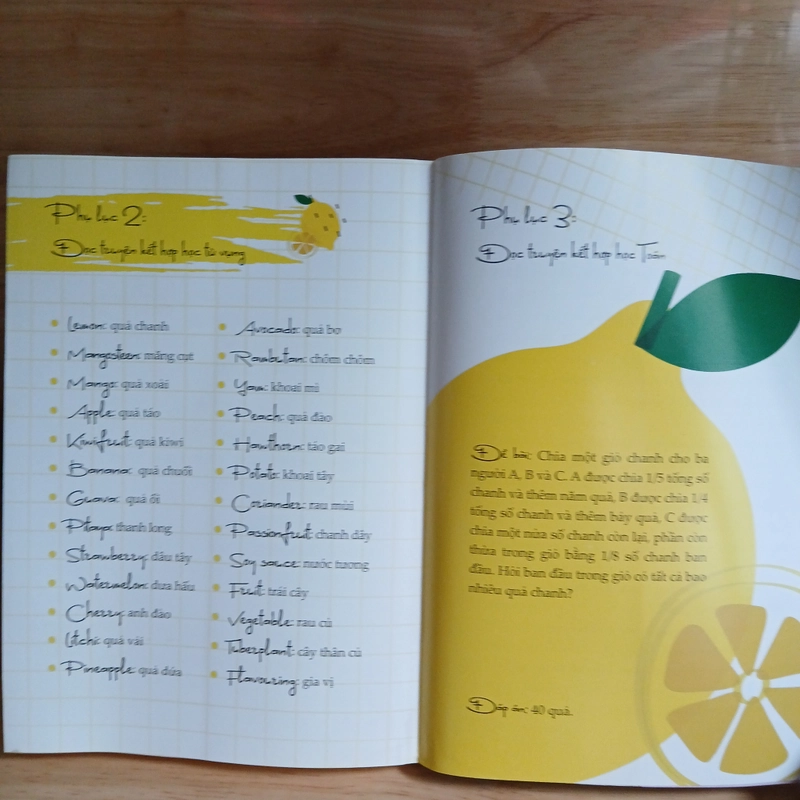 Phụ lục 2:
Đọc truyện kết hợp học từ vựng
Lemon: quả chanh
Mangosteen: măng cụt
Mango: quả xoài
Apple: quả táo
Kiwifruit: quả kiwi
Banana: quả chuối
Guava: quả ổi
Pitaya: thanh long
Strawberry: dâu tây
Watermelon: dưa hấu
Cherry: anh đào
Litchi: quả vải
Pineapple: quả dứa
Avocado: quả bơ
Rambutan: chôm chôm
Yam: khoai mì
Peach: quả đào
Hawthorn: táo gai
Potato: khoai tây
Coriander: rau mùi
Passionfruit: chanh dây
Soy sauce: nước tương
Fruit: trái cây
Vegetable: rau củ
Tuberplant: cây thân củ
Flavouring: gia vị
Phụ lục 3:
Đọc truyện kết hợp học Toán
Đề bài: Chia một giỏ chanh cho ba
người A, B và C. A được chia 1/5 tổng số
chanh và thêm năm quả, B được chia 1/4
tổng số chanh và thêm bảy quả, C được
chia một nửa số chanh còn lại, phần còn
thừa trong giỏ bằng 1/8 số chanh ban
đầu. Hỏi ban đầu trong giỏ có tất cả bao
nhiêu quả chanh?
Đáp án: 40 quả.